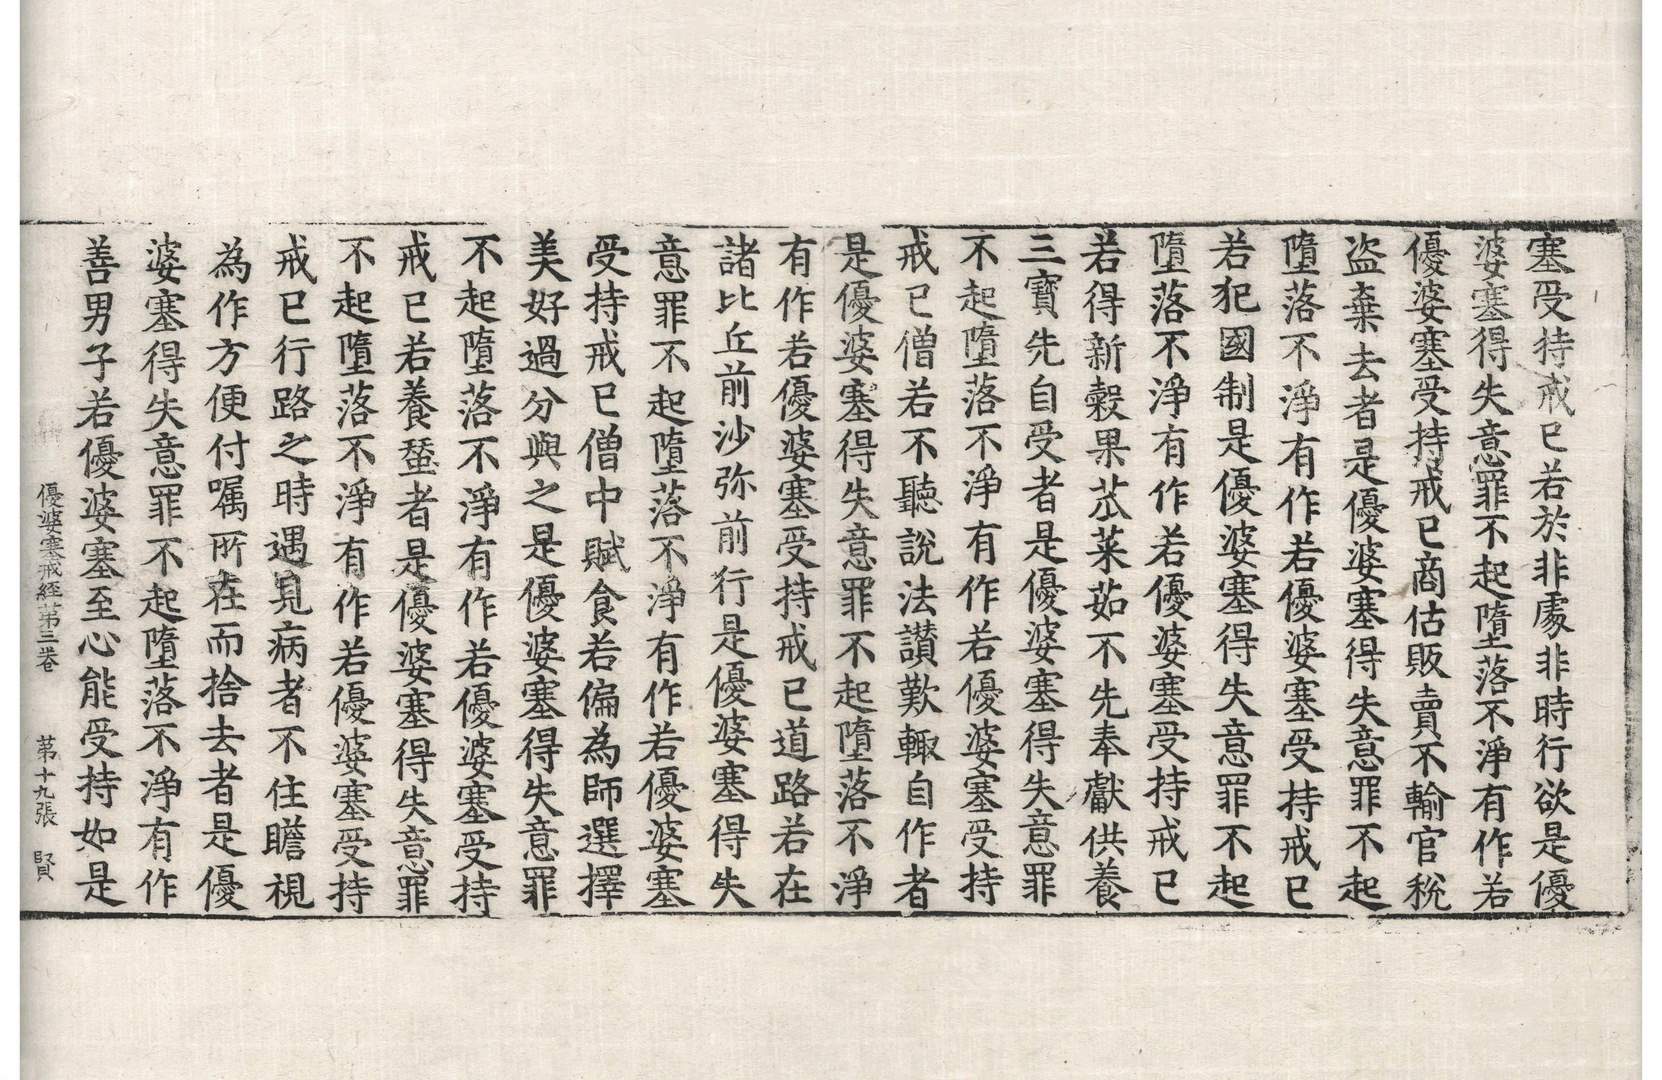 塞受持戒已若於非處非時行欲是優
婆塞得失意罪不起墮落不淨有作若
優婆塞受持戒已商估販賣不輸官稅
盜棄去者是優婆塞得失意罪不起
墮落不淨有作若優婆塞受持戒已
若犯國制是優婆塞得失意罪不起
墮落不淨有作若優婆塞受持戒已
若得新穀果苽菜茹不先奉獻供養
三寶先自受者是優婆塞得失意罪
不起墮落不淨有作若優婆塞受持
戒已僧若不聽說法讃歎輙自作者
是優婆塞得失意罪不起墮落不淨
有作若優婆塞受持戒已道路若在
諸比丘前沙弥前行是優婆塞得失
意罪不起墮落不淨有作若優婆塞
受持戒已僧中賦食若偏為師選擇
美好過分與之是優婆塞得失意罪
不起墮落不淨有作若優婆塞受持
戒已若養蚕者是優婆塞得失意罪
不起墮落不淨有作若優婆塞受持
戒已行路之時遇見病者不住瞻視
為作方便付囑所在而捨去者是優
婆塞得失意罪不起墮落不淨有作
善男子若優婆塞至心能受持如是
優婆塞戒経第三卷 第十九張 賢